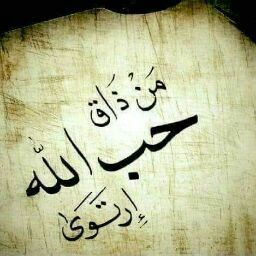 مَنْ ذَاق
حب اللّه
إرتَوَىٰ